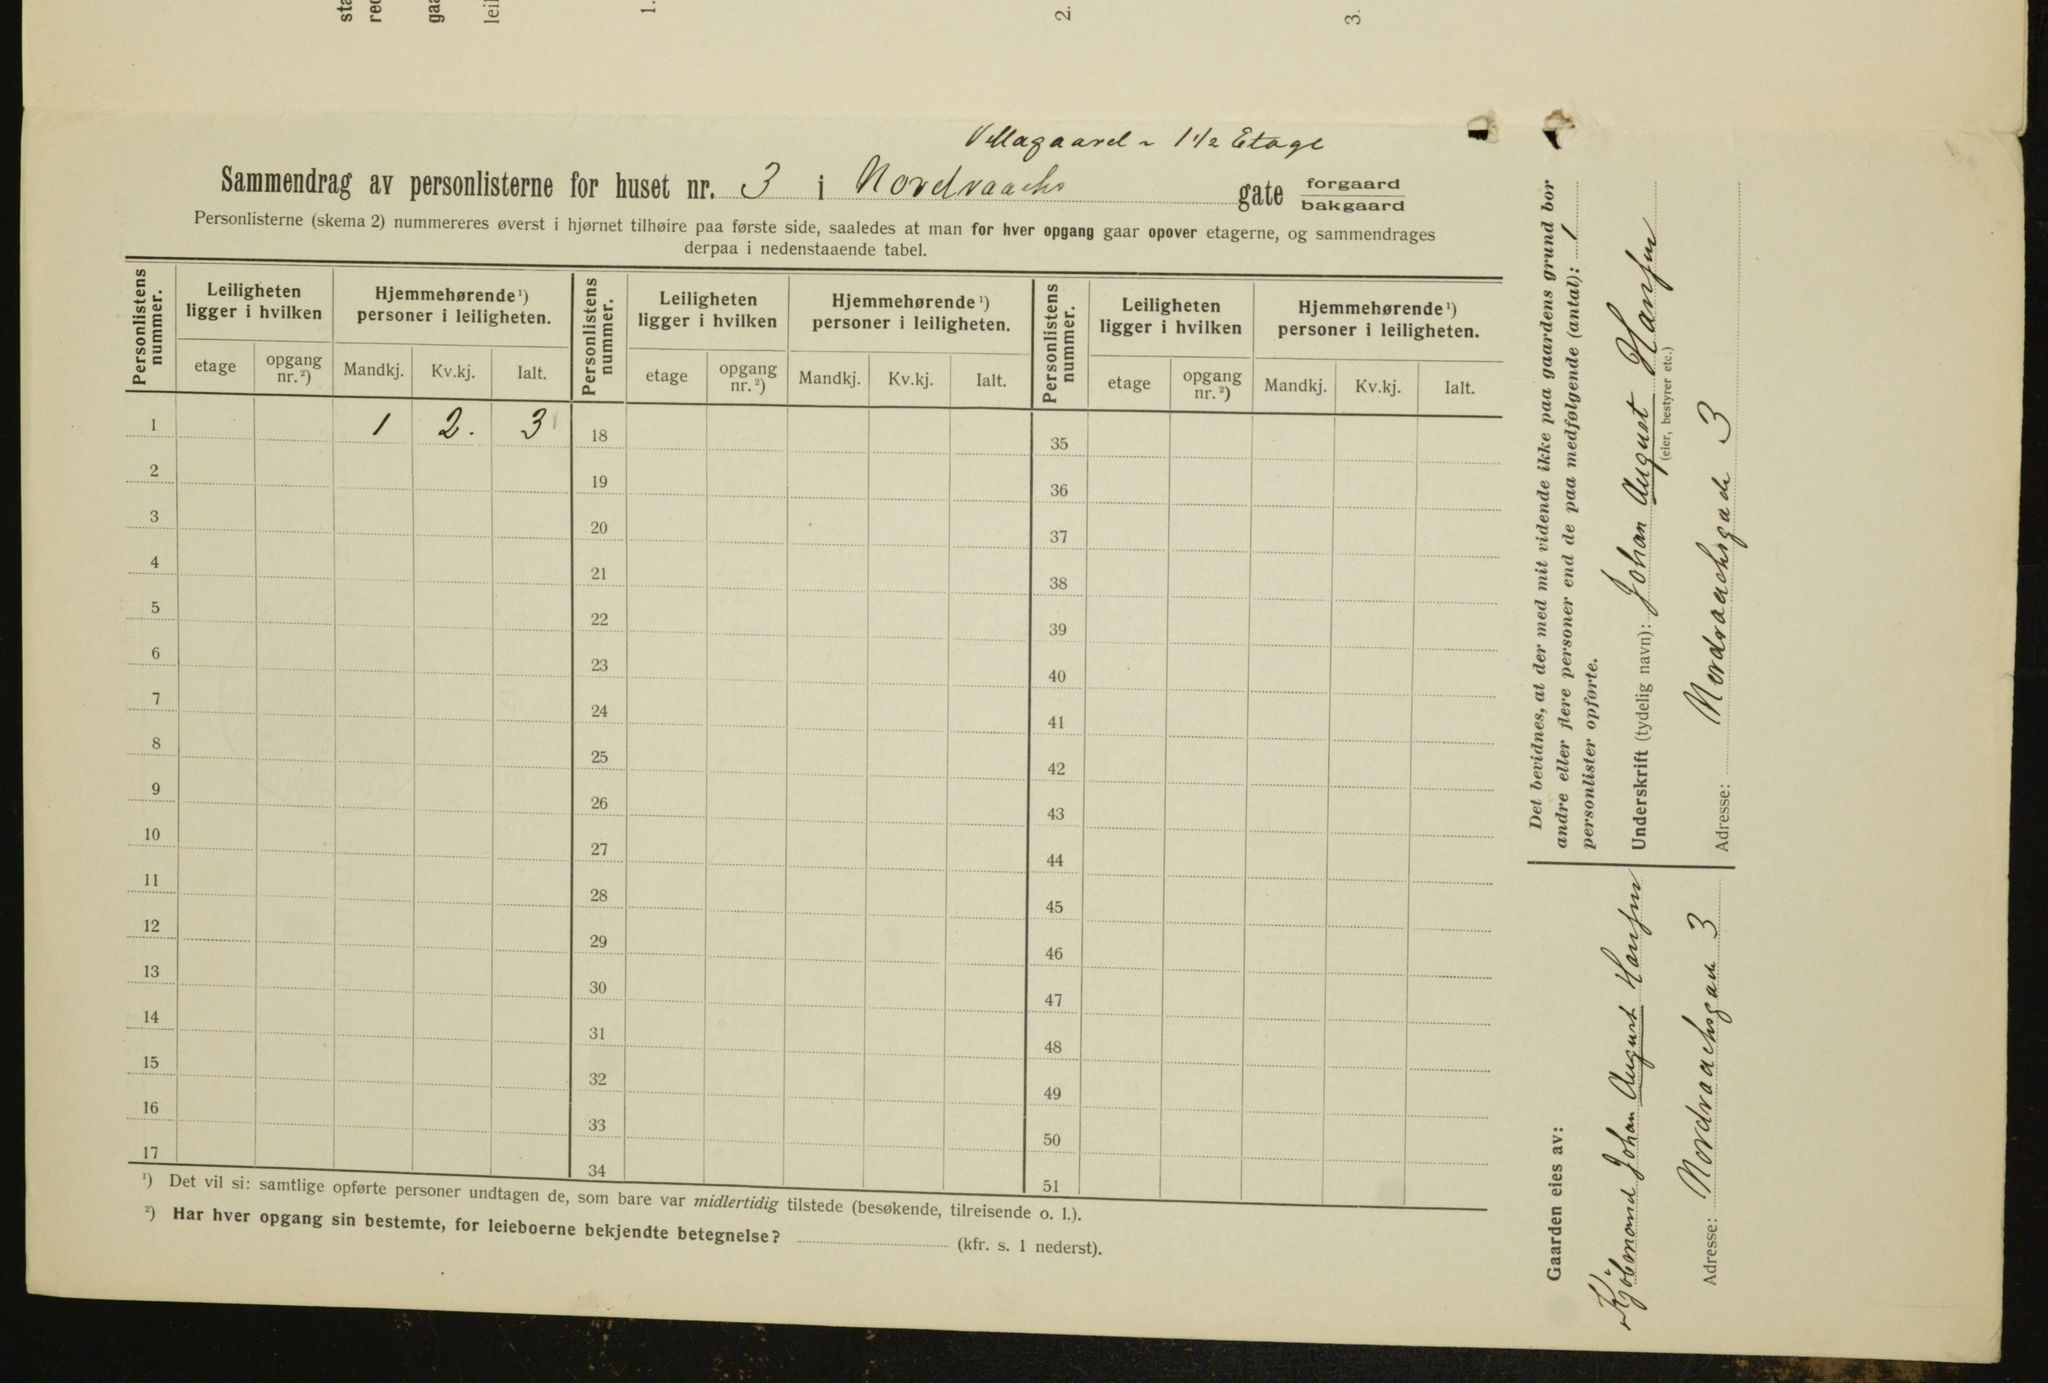 sta
red
gaa
leil
1.
2.
3.
Villagaard ~ 1 1/2 Etage
Sammendrag av personlisterne for huset nr. 3 i Nordraachs gate forgaard
bakgaard
Personlisterne (skema 2) nummereres øverst i hjørnet tilhøire paa første side, saaledes at man for hver opgang gaar opover etagerne, og sammendrages
derpaa i nedenstaaende tabel.
Personlistens nummer. Leiligheten ligger i hvilken Hjemmehørende ¹) personer i leiligheten. Personlistens nummer. Leiligheten ligger i hvilken Hjemmehørende ¹) personer i leiligheten. Personlistens nummer. Leiligheten ligger i hvilken Hjemmehørende ¹) personer i leiligheten.
etage opgang nr. ²) Mandkj. Kv.kj. Ialt. etage opgang nr. ²) Mandkj. Kv.kj. Ialt. etage opgang nr. ²) Mandkj. Kv.kj. Ialt.
1 1 2. 3 18 35
2 19 36
3 20 37
4 21 38
5 22 39
6 23 40
7 24 41
8 25 42
9 26 43
10 27 44
11 28 45
12 29 46
13 30 47
14 31 48
15 32 49
16 33 50
17 34 51
¹) Det vil si: samtlige opførte personer undtagen de, som bare var midlertidig tilstede (besøkende, tilreisende o. l.).
²) Har hver opgang sin bestemte, for leieboerne bekjendte betegnelse? (kfr. s. 1 nederst).
Det bevidnes, at der med mit vidende ikke paa gaardens grund bor
andre eller flere personer end de paa medfølgende (antal): 1
personlister opførte.
Underskrift (tydelig navn): Johan August Hansen
(eier, bestyrer etc.)
Adresse: Nordraachsgade 3
Gaarden eies av:
Kjøbmand Johan August Hansen
Adresse: Nordraachsgade 3